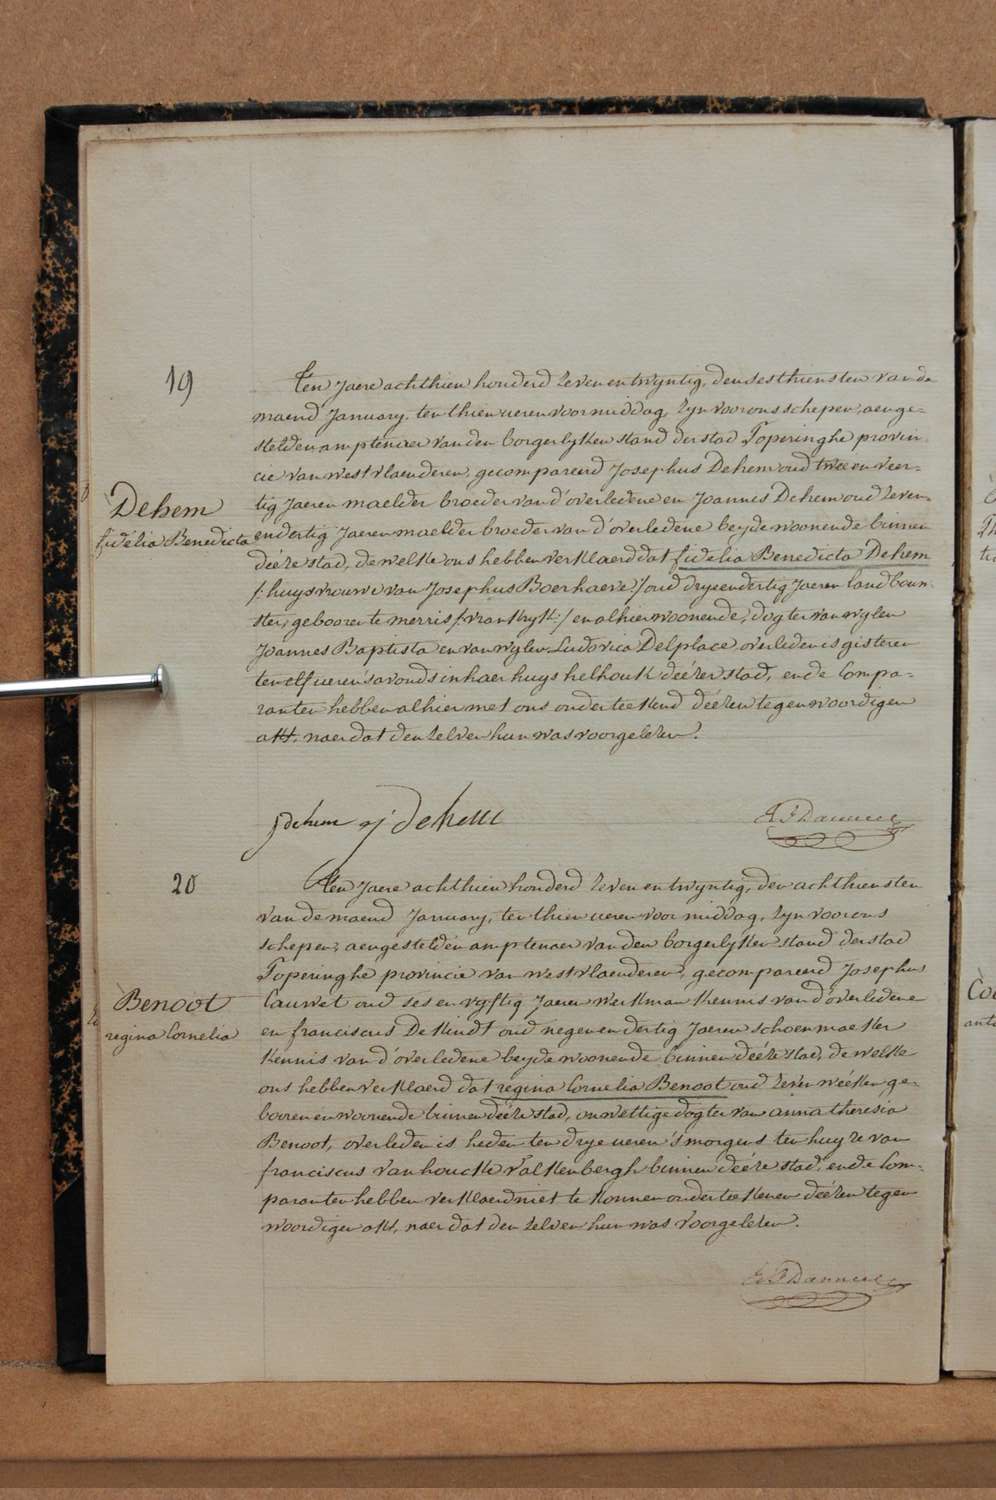 19
Ten Jaere achthien honderd zeven en twyntig, den sesthiensten van de
maend January, ten thien ueren voormiddag, zyn voor ons schepen, aenge=
stelden amptenaer van den borgerlyken stand der stad Poperinghe provin=
cie van Westvlaenderen, gecompareerd Josephus Dehem oud twee en veer=
tig Jaeren maelder broeder van d'overledene en Joannes Dehem oud zeven=
Dehem
fidélia Benedicta
endertig Jaeren maelder broeder van d'overledene beyde woonende binnen
deéze stad, de welke ons hebben verklaerd dat fidelia Benedicta Dehem
/: huysvrouwe van Josephus Boerhaeve :/ oud dryendertig Jaeren landbouw=
ster, gebooren te merris /: vrankryk :/ en alhier woonende, dogter van wylen
Joannes Baptista en van wylen Ludovica Delplace, overleden is gisteren
ten elf ueren s'avonds in haer huys helhouk deézer stad, ende Compa=
ranten hebben alhier met ons onderteekend deézen tegenwoordigen
akt, naer dat den zelven hun was voorgelezen.
J dehem j Dehem
20
Ten Jaere achthien honderd zeven en twyntig, den achthiensten
van de maend January, ten thien ueren voormiddag, zyn voor ons
schepen, aengestelden amptenaer van den borgerlyken stand der stad
Poperinghe provincie van Westvlaenderen, gecompareerd Josephus
Benoot
regina Cornelia
Cauwet oud ses en vyftig Jaeren werkman kennis van d'overledene
en franciscus De Kindt oud negenendertig Jaeren schoenmaeker
kennis van d'overledene beyde woonende binnen deéze stad, de welke
ons hebben verklaerd dat regina Cornelia Benoot oud zeven wéeken ge=
booren en woonende binnen deéze stad, onwettige dogter van anna theresia
Benoot, overleden is heden ten drye ueren 's morgens ten huyze van
franciscus Vanhoucke Valkenbergh binnen deéze stad, ende Com=
paranten hebben verklaerd niet te konnen onderteekenen deézen tegen
woordigen akt, naer dat den zelven hun was voorgelezen.